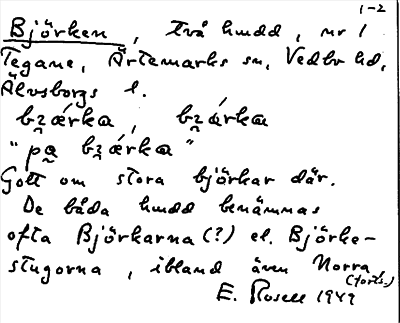 1-2
Björken, två hmdd, nr 1
Tegane, Ärtemarks sn, Vedbo hd,
Älvsborgs l.
bʒ̯ǽrka, bʒ̯ǽrka
"pa bʒ̯ǽrka"
Gott om stora björkar där.
De båda hmdd benämnas
ofta Björkarna (?) el. Björke-
stugorna, ibland även Norra
(forts.)
E. Rosell 1949